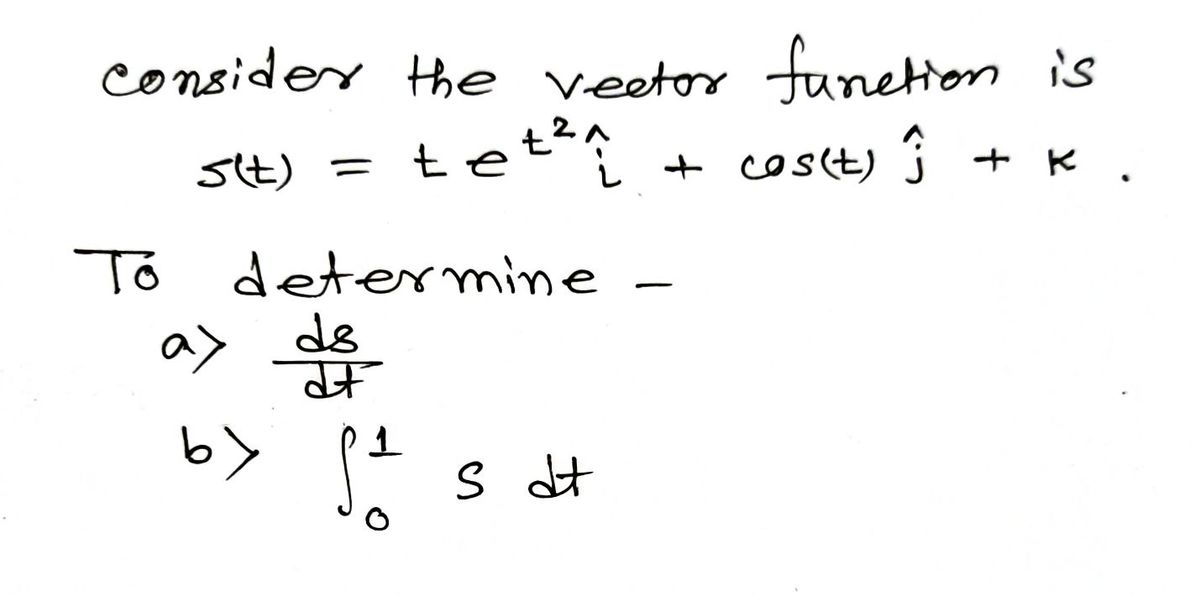 consider the vector function is
s(t) = t e^{t^2} î + cos(t) ĵ + k .
To determine –
a> ds/dt
b> ∫_0^1 s dt